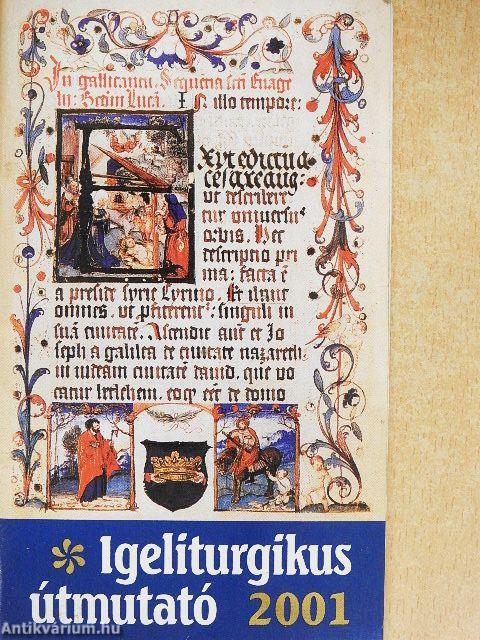 In gallicantu. Sequētia scti Euāge
lii: Scdm Lucā. In illo tempore:
Exyt edictū a
cesare aug:
ut describere
tur uniuersꝰ
orbis. Hec
descriptio pri
ma: facta ē
a preside syrie Cyrino. Et ibant
omnes, ut pfiterent: singuli in
suā ciuitatē. Ascendit autē et Jo
seph a galilea de ciuitate nazareth:
in iudeam ciuitatē dauid, que vo
catur bethlehem. eo qꝫ eēt de domo
Igeliturgikus
útmutató 2001
Antikvárium.hu